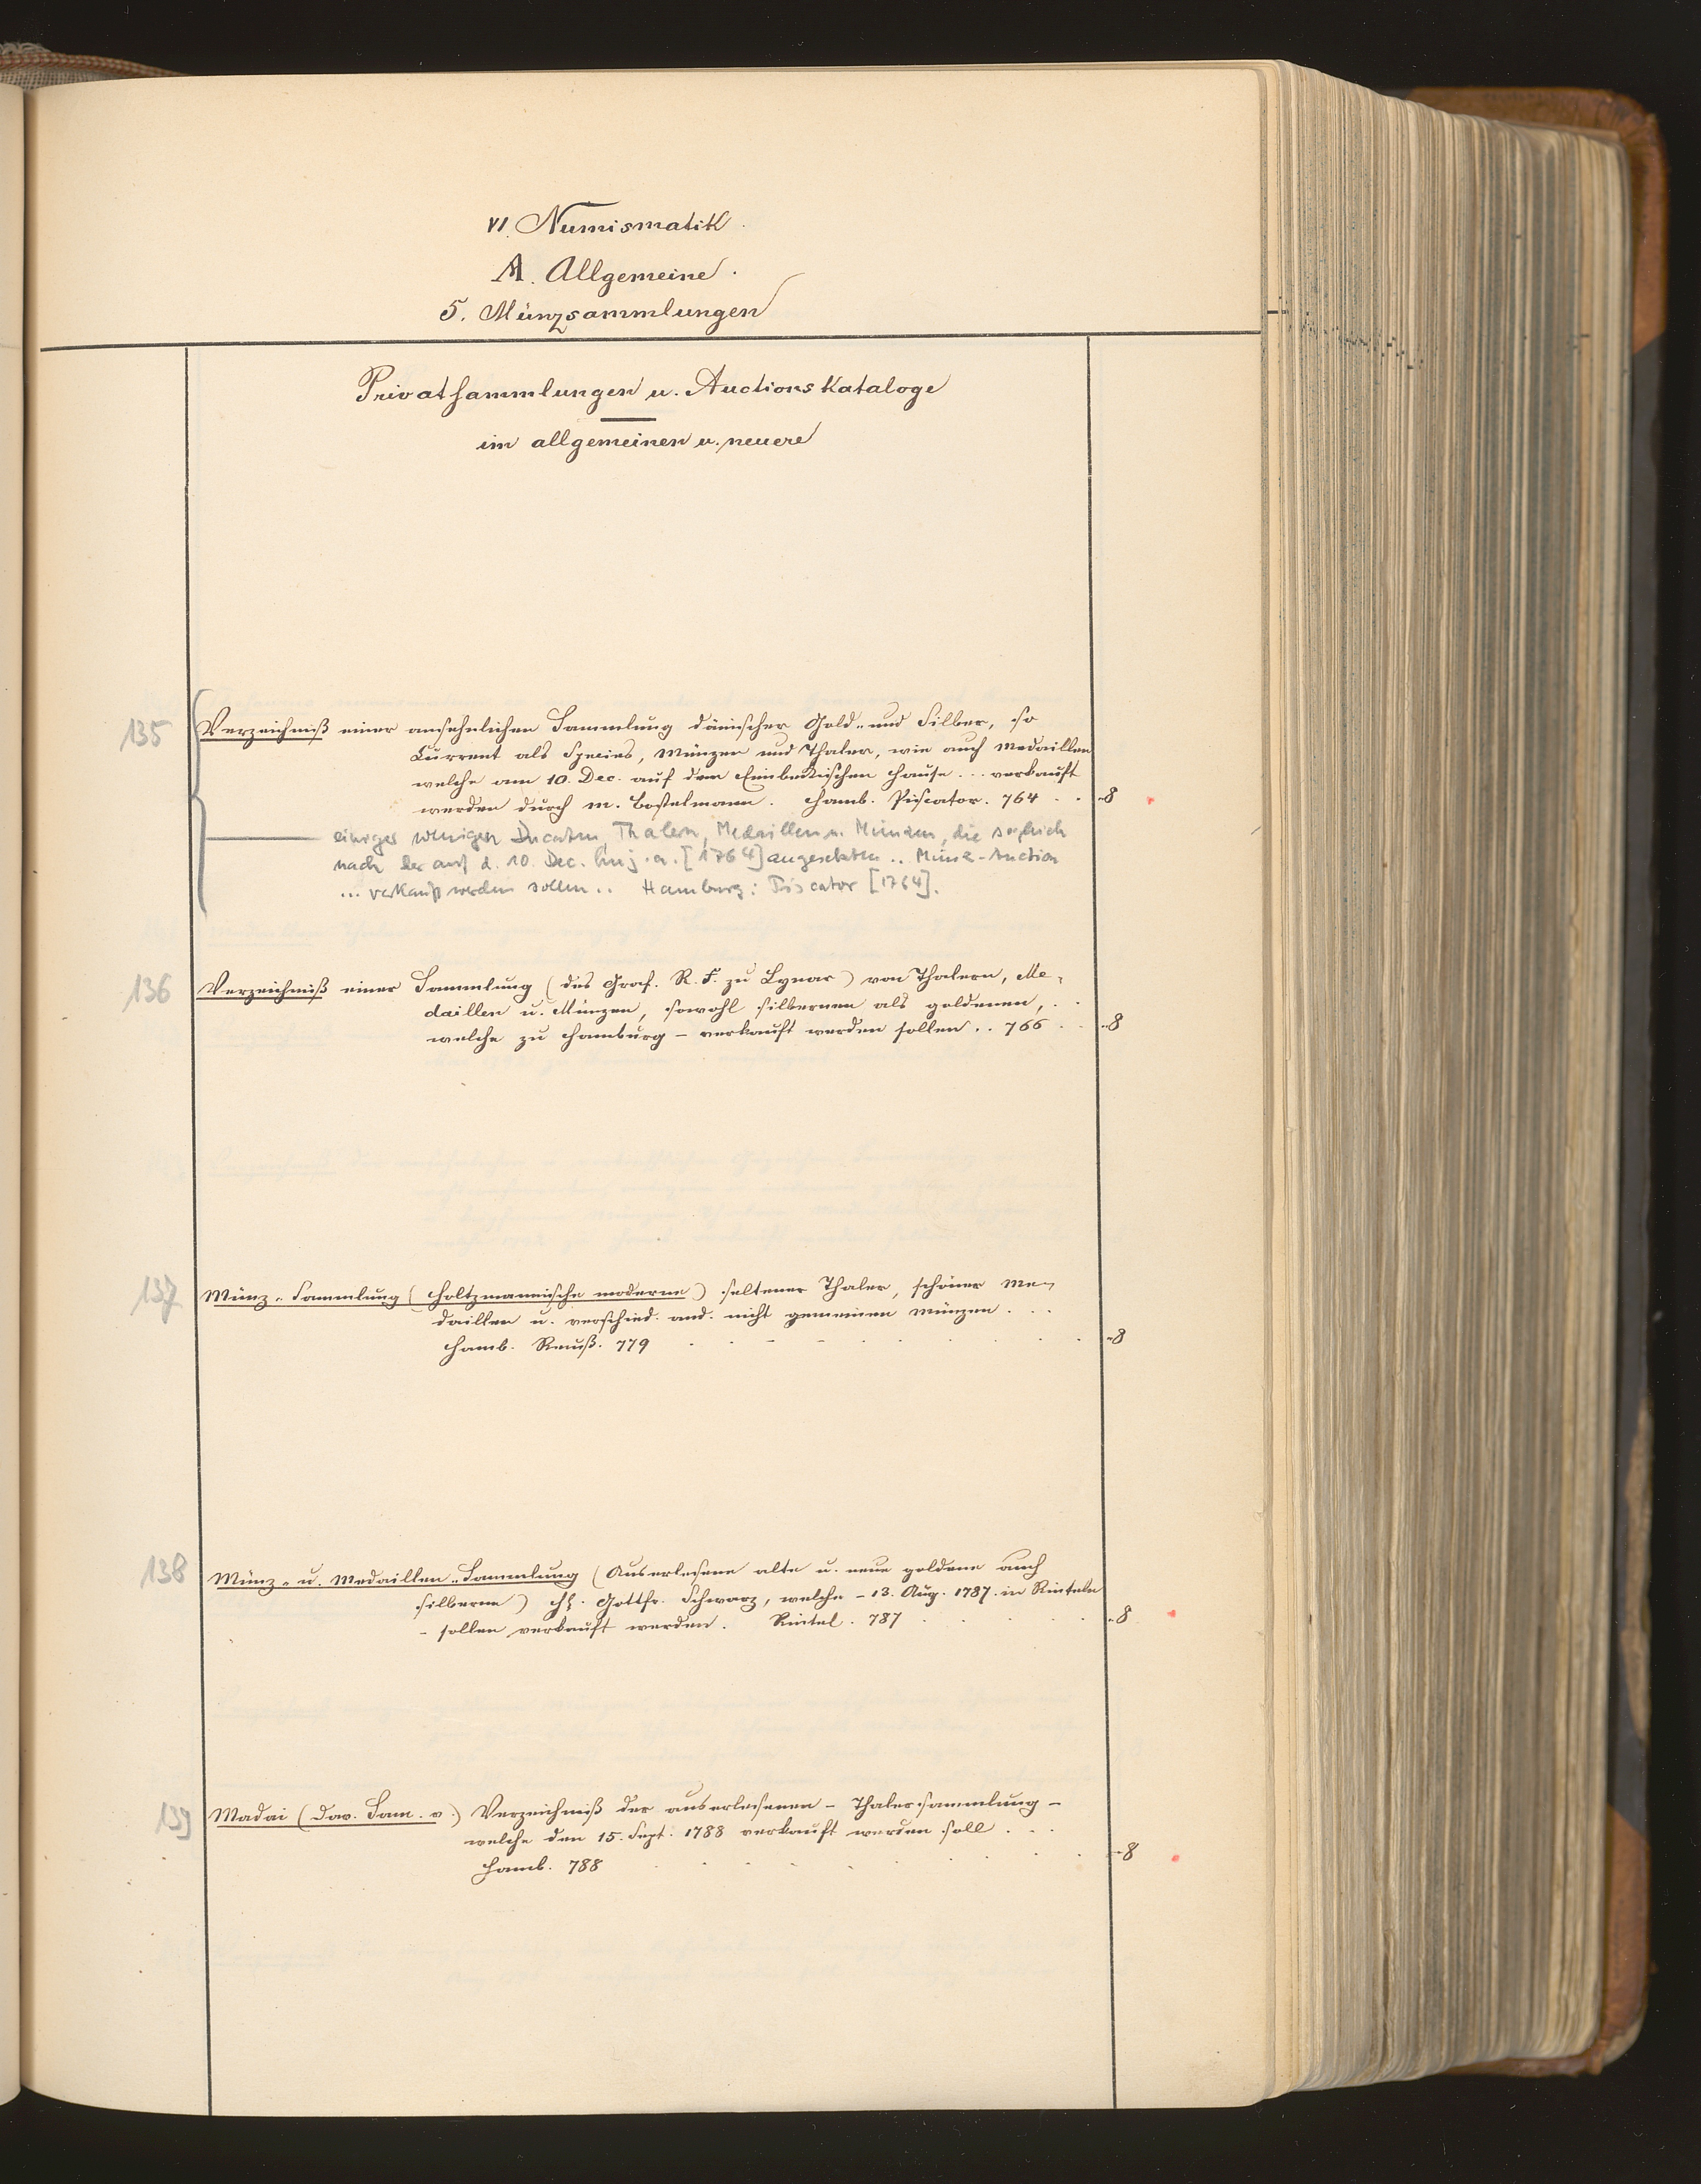 VI. Numismatik.
A. Allgemeine.
5. Münzsammlungen
Privatsammlungen u. Auctions Kataloge
im allgemeinen u. neuere
135 Verzeichniß einer ansehnlichen Sammlung dänischer Gold- und Silber, so
Current als Species, Münzen und Thaler, wie auch Medaillen
welche am 10. Dec. auf dem Eimbeckischen Hause ... verkauft
werden durch M. Bostelmann. Hamb. Piscator. 764 . . -8
einiger weniger Ducaten, Thalern, Medaillen u. Münzen, die sogleich
nach der auf d. 10. Dec. huj. a. [1764] angesetzten .. Münz-Auction
... verkauft werden sollen .. Hamburg: Piscator [1764].
136 Verzeichniß einer Sammlung (des Graf. R. F. zu Lynar) von Thalern, Me-
daillen u. Münzen, sowohl silbernen als goldenen, . .
welche zu Hamburg – verkauft werden sollen .. 766 . . -8
137 Münz-Sammlung (Holtzmannische moderne) seltener Thaler, schöner Me-
daillen u. verschied. and. nicht gemeinen Münzen . . .
Hamb. Reuß. 779 -8
138 Münz- u. Medaillen-Sammlung (Auserlesene alte u. neue goldene auch
silberne) Gottfr. Schwarz, welche – 13. Aug. 1787. in Rinteln
– sollen verkauft werden. Rintel. 787 -8
139 Madai (Dav. Sam. v.) Verzeichniß der auserlesenen – Thalersammlung –
welche den 15. Sept. 1788 verkauft werden soll . . .
Hamb. 788 -8